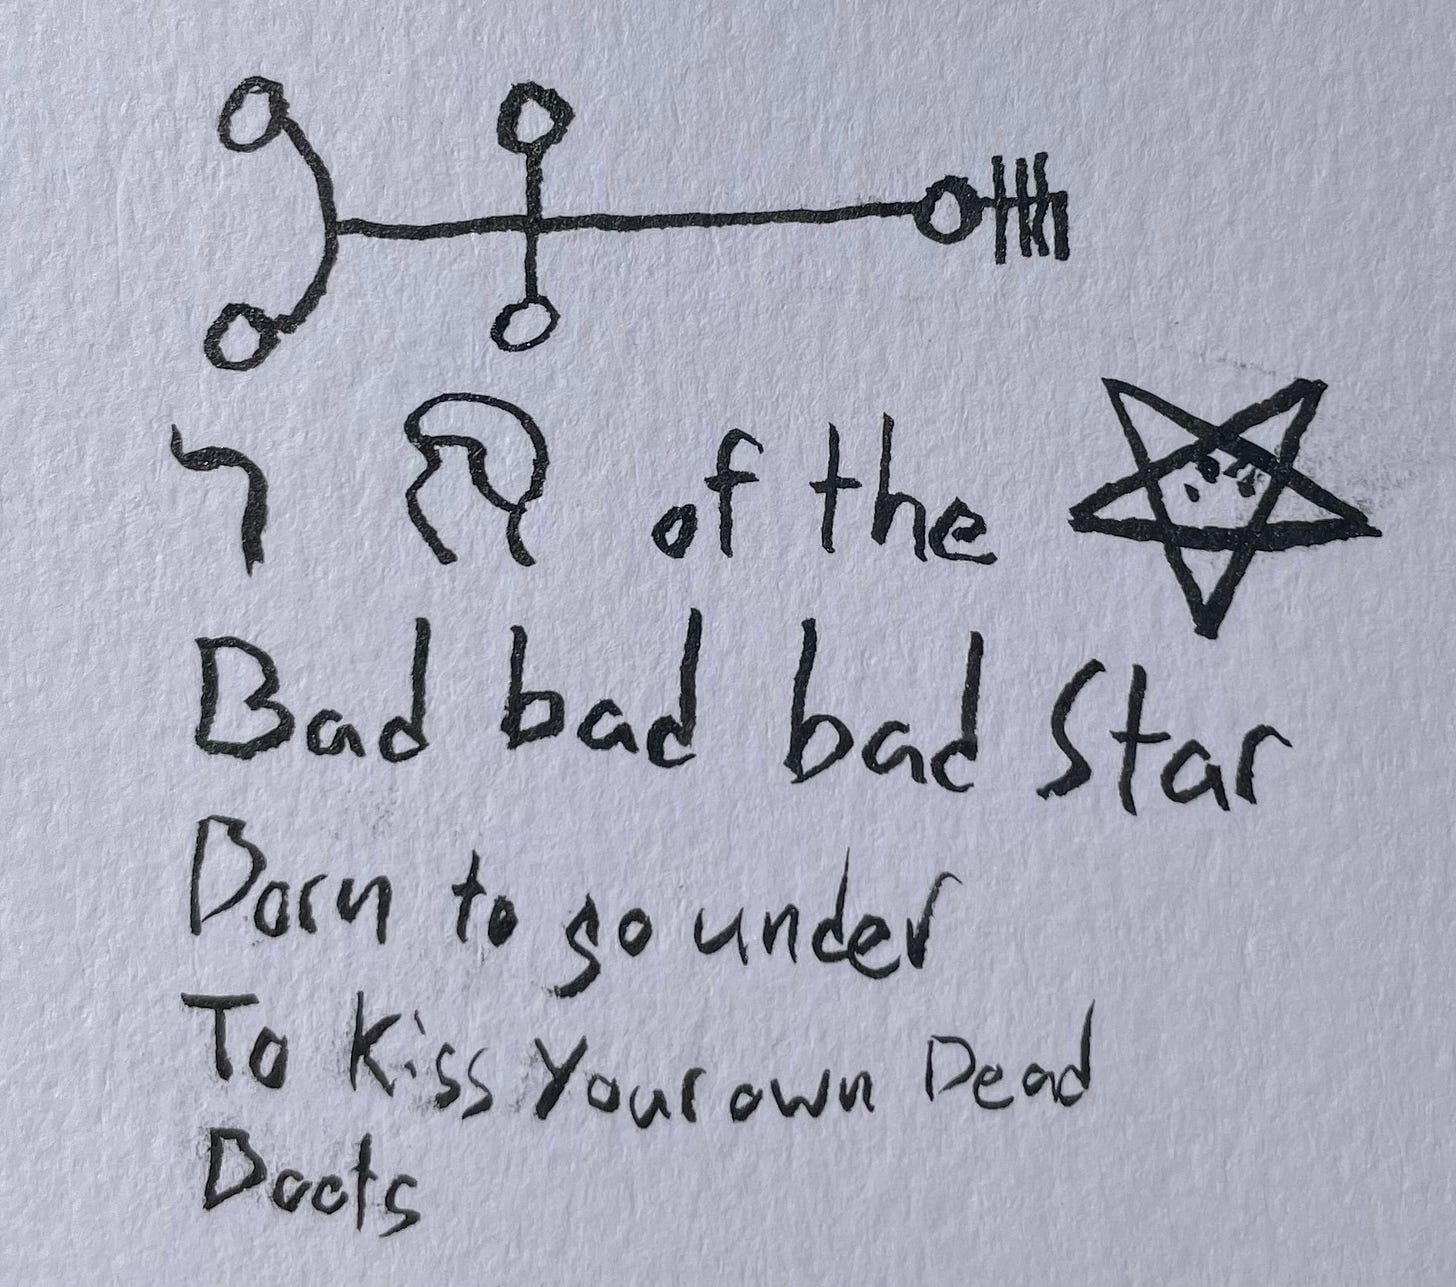 of the
Bad bad bad Star
Born to go under
To Kiss Your own Dead
Boots